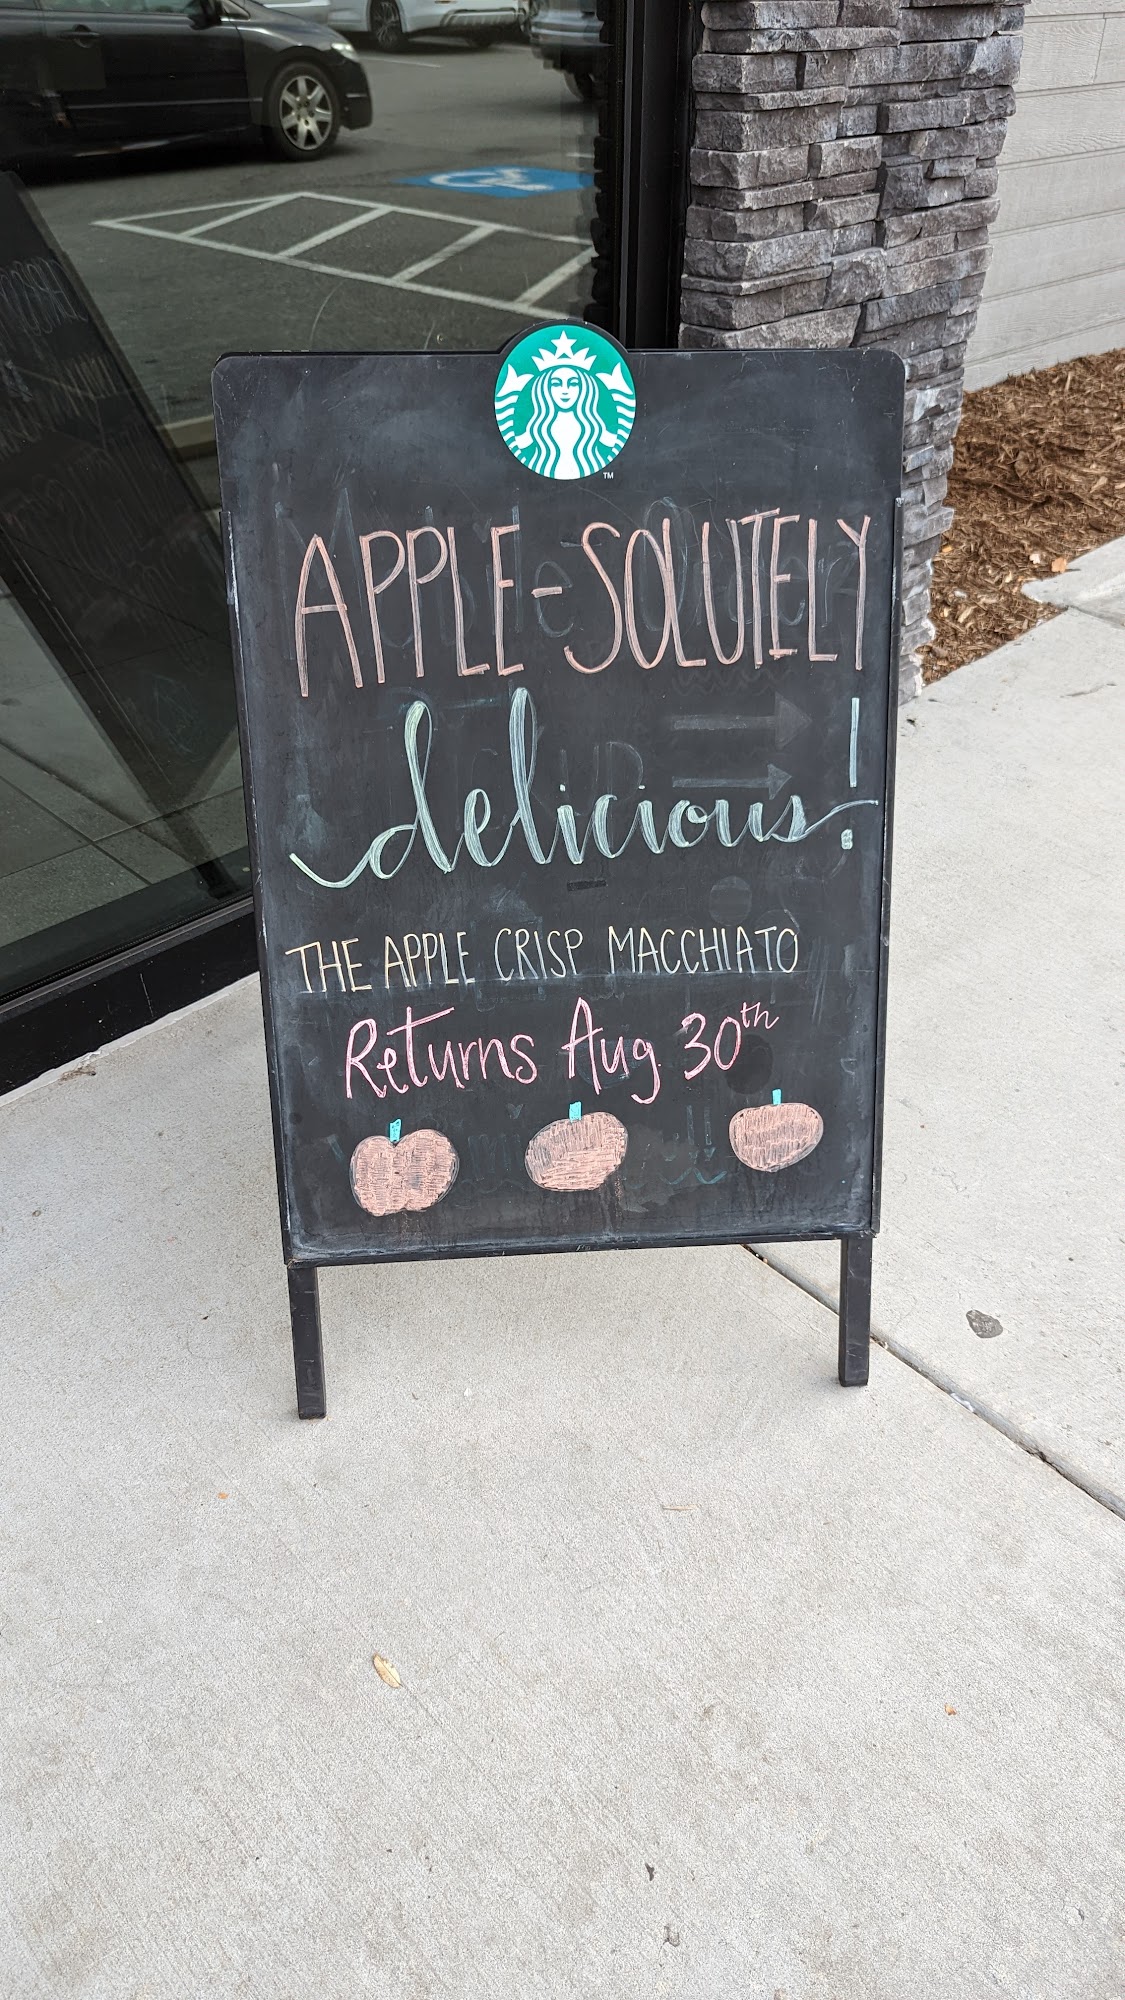 APPLE-SOLUTELY
delicious!
THE APPLE CRISP MACCHIATO
Returns Aug 30th
TM